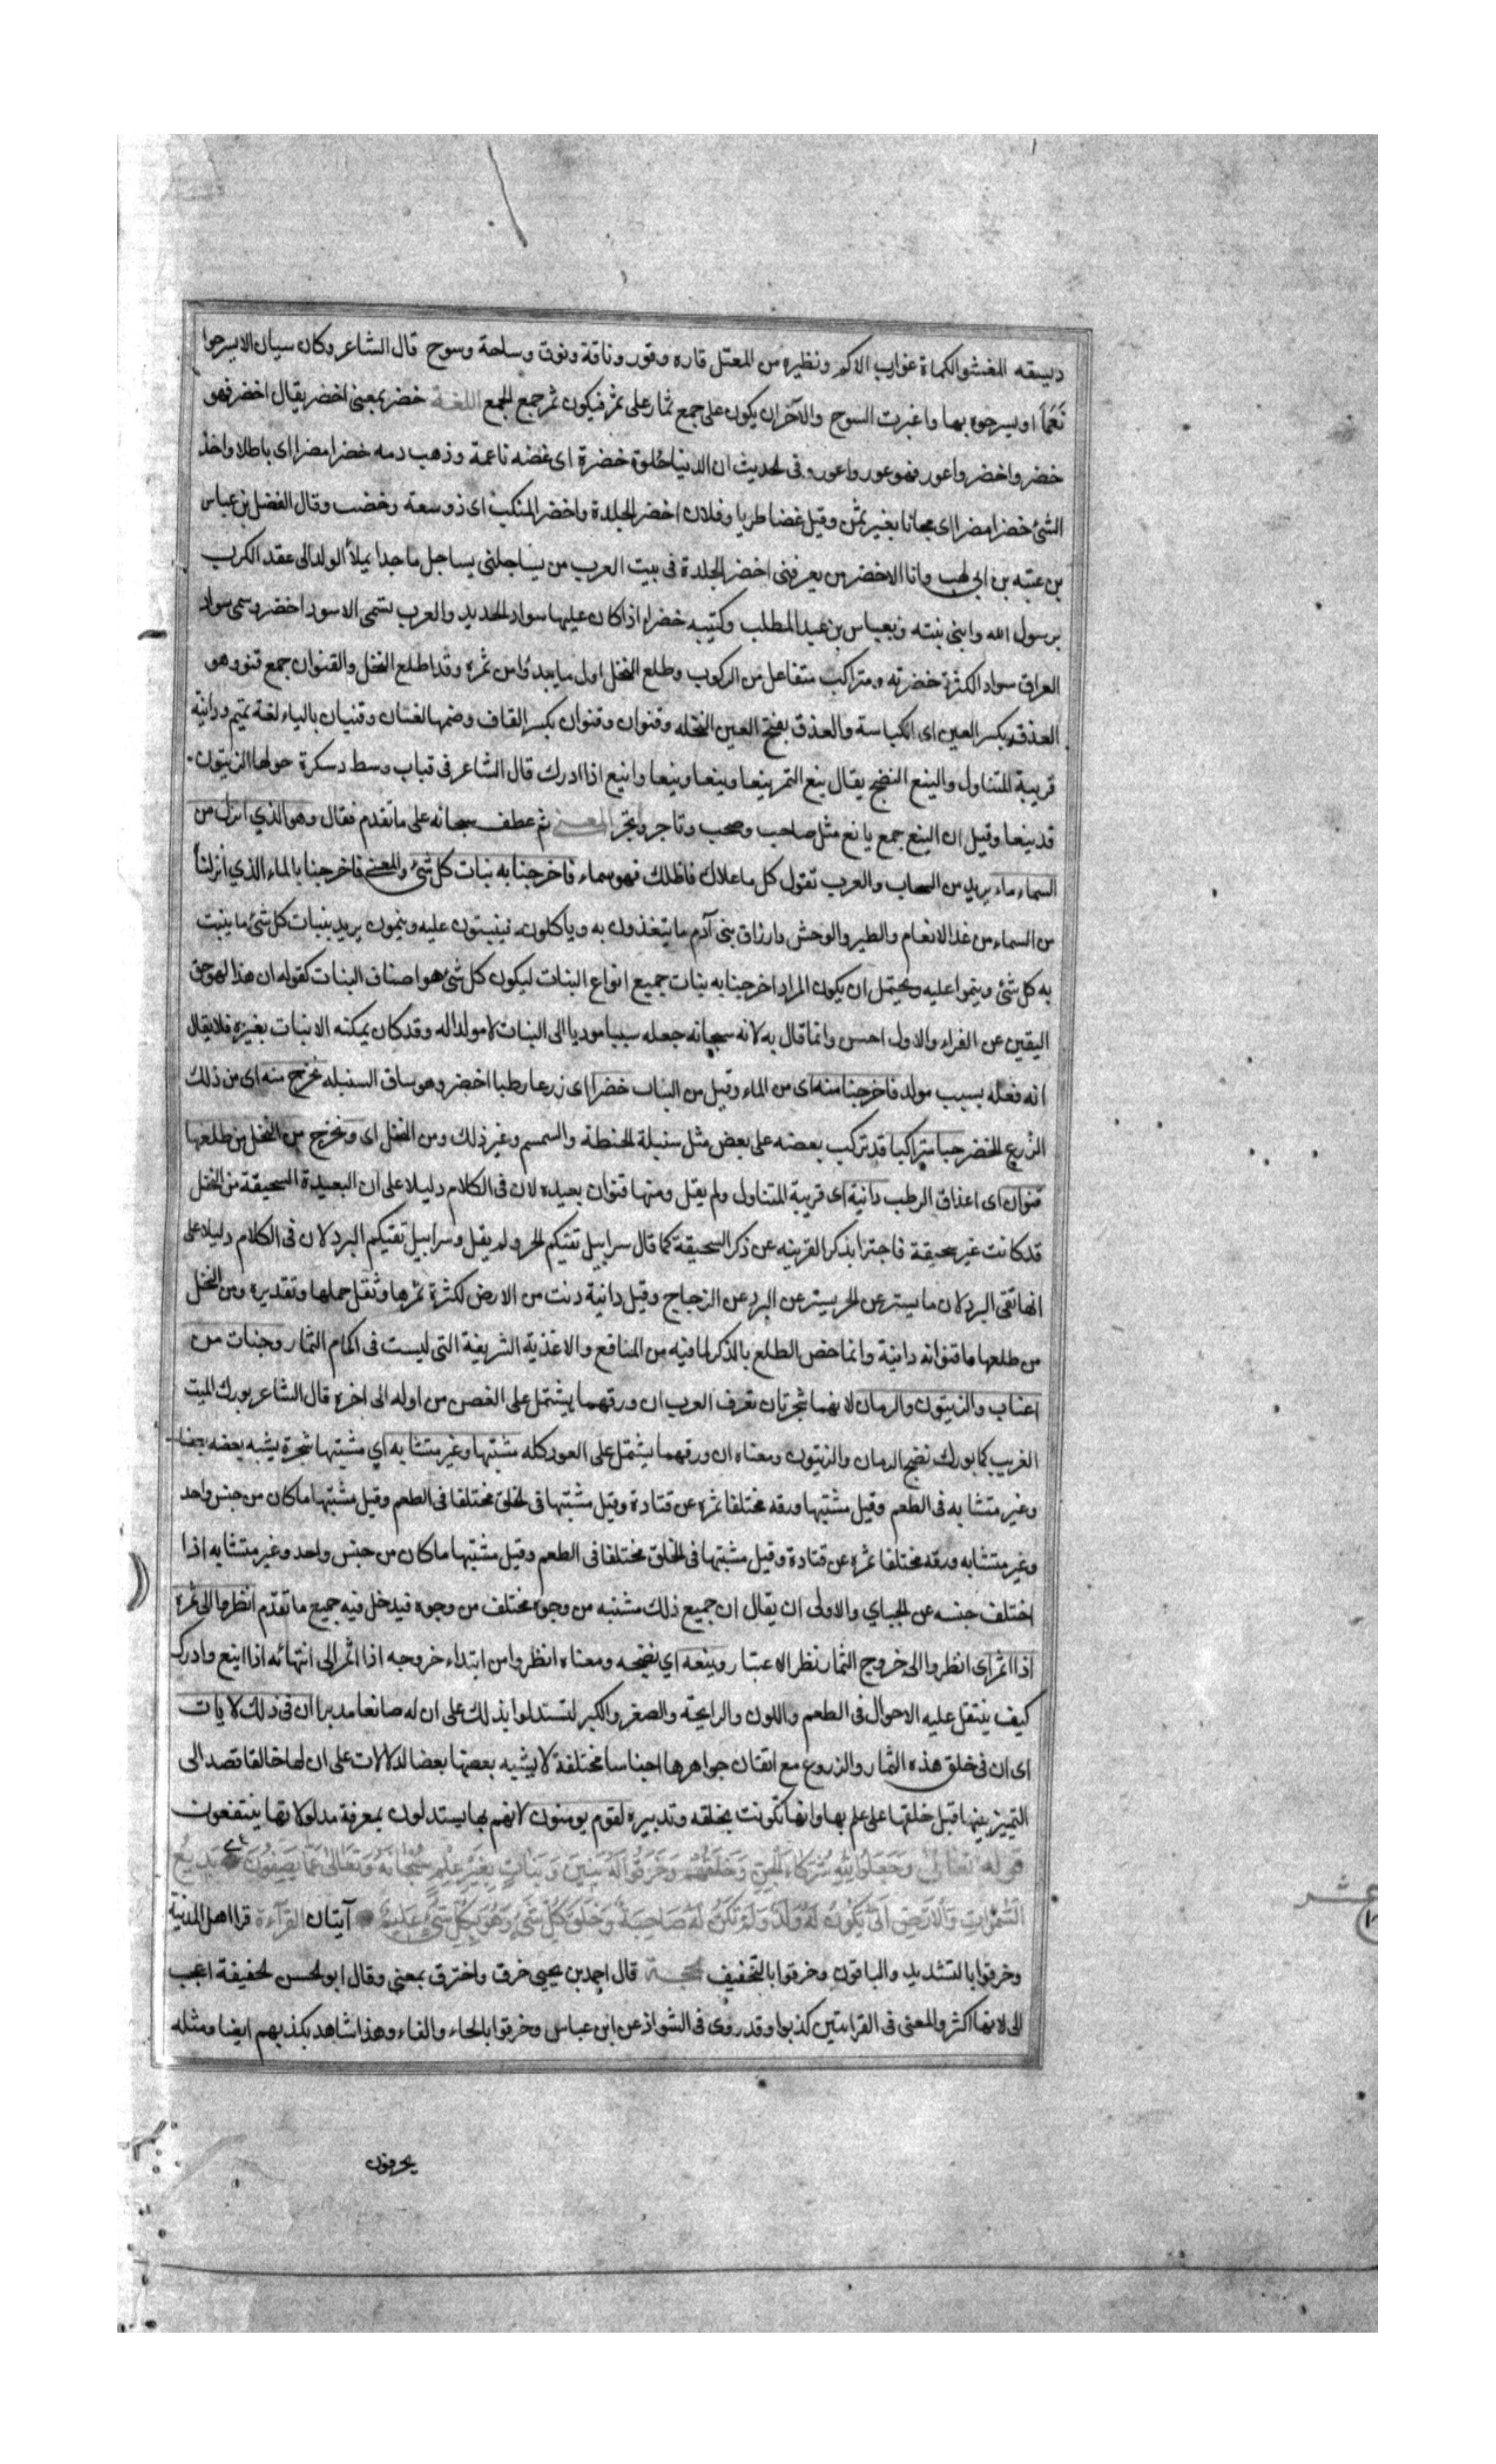 دسيقه المغشو الكماة غوارب الاكم ونظيره من المعتل قاره وقور وناقة ونوق وساحة وسوح قال الشاعر وكان سيان الا يسرحوا
نَعَمًا او يسرحوه بها واغبرت السوح والآخر ان يكون على جمع ثمار على ثمر فيكون ثمر جمع الجمع اللغة خضر بمعنى اخضر يقال اخضر فهو
خضر واخضر واعور فهو عور واعور وفى الحديث ان الدنيا حلوة خضرة اى غضه ناعمة وذهب دمه خضرا مضرا اى باطلا واخذ
الشئ خضرا مضرا اى مجانا بغير ثمن وقيل غضا طريا وفلان اخضر الجلدة واخضر المنكب اى ذو سعة وخضب وقال الفضل بن عباس
بن عتبه بن ابى لهب وانا الاخضر من يعرفنى اخضر الجلدة فى بيت العرب من يساجلنى يساجل ماجدا يملأ الولد الى عقد الكرب
برسول الله وابنى بنته وبعباس بن عبد المطلب وكتيبه خضراء اذا كان عليها سواد الحديد والعرب تسمى الاسود اخضر وسمى سواد
العراق سواد الكثرة خضرته ومتراكب متفاعل من الركوب وطلع النخل اول ما يبدؤا من ثمره وقد اطلع النخل والقنوان جمع قنو وهو
العذق بكسر العين اى الكباسة والعذق بفتح العين النخله وقنوان وقنوان بكسر القاف وضمها لغتان وقنيان بالياء لغة تميم ودانية
قريبة المتناول والينع النضج يقال ينع التمر ينعا وينعا وينعا واينع اذا ادرك قال الشاعر فى قباب وسط دسكرة حولها الزيتون
قد ينعا وقيل ان الينع جمع يانع مثل صاحب وصحب وتاجر وتجر المعنى ثم عطف سبحانه على ما تقدم فقال وهو الذي انزل من
السماء ماء يريد من السحاب والعرب تقول كل ما علاك فاظلك فهو سماء فاخرجنا به نبات كل شئ والمعنى فاخرجنا بالماء الذي انزلنا
من السماء من غذا الانعام والطير والوحش وارزاق بنى آدم ما يتغذون به وياكلون فينبتون عليه وينمون يريد بنبات كل شئ ما ينبت
به كل شئ وينموا عليه ويحتمل ان يكون المراد اخرجنا به نبات جميع انواع النبات ليكون كل شئ هو اصناف النبات كقوله ان هذا لهو حق
اليقين عن الفراء والاول احسن وانما قال به لانه سبحانه جعله سببا موديا الى النبات لا مولدا له وقد كان يمكنه الانبات بغيره فلا يقال
انه فعله بسبب مولد فاخرجنا منه اى من الماء وقيل من النبات خضرا اى زرعا رطبا اخضر وهو ساق السنبله نخرج منه اى من ذلك
الزرع الخضر حبا متراكبا قد تركب بعضه على بعض مثل سنبلة الحنطة والسمسم وغير ذلك ومن النخل اى ونخرج من النخل من طلعها
قنوان اى اعذاق الرطب دانية اى قريبة المتناول ولم يقل ومنها قنوان بعيده لان فى الكلام دليلا على ان البعيدة السحيقة من النخل
قد كانت غير سحيقة فاجتزا بذكر القريبه عن ذكر السحيقة كما قال سرابيل تقيكم الحر ولم يقل وسرابيل تقيكم البرد لان فى الكلام دليلا على
انها تقى البرد لان ما يستر عن الحر يستر عن البرد عن الزجاج وقيل دانية دنت من الارض لكثرة ثمرها وثقل حملها وتقديره ومن النخل
من طلعها ما قنوانه دانية وانما خص الطلع بالذكر لما فيه من المنافع والاغذية الشريفة التى ليست فى اكمام الثمار وجنات من
اعناب والزيتون والرمان لانهما شجرتان تعرف العرب ان ورقهما يشتمل على الغصن من اوله الى اخره قال الشاعر بورك الميت
الغريب كما بورك نضج الرمان والزيتون ومعناه ان ورقهما يشتمل على العود كله مشتبها وغير متشابه اي مشتبها شجرة يشبه بعضه بعضا
وغير متشابه فى الطعم وقيل مشتبها ورقه مختلفا ثمره عن قتادة وقيل مشتبها فى الخلق مختلفا فى الطعم وقيل مشتبها ما كان من جنس واحد
وغير متشابه ورقه مختلفا ثمره عن قتادة وقيل مشتبها فى الخلق مختلفا فى الطعم وقيل مشتبها ما كان من جنس واحد وغير متشابه اذا
اختلف جنسه عن الجباي والاولى ان يقال ان جميع ذلك مشتبه من وجوه مختلف من وجوه فيدخل فيه جميع ما تقدّم انظروا الى ثمره
اذا اثمر اى انظروا الى خروج الثمار نظر الاعتبار وينعه اي نضجه ومعناه انظروا من ابتداء خروجه اذا اثمر الى انتهائه اذا اينع وادرك
كيف ينتقل عليه الاحوال فى الطعم واللون والرايحة والصغر والكبر لتستدلوا بذلك على ان له صانعا مدبرا ان فى ذلك لايات
اى ان فى خلق هذه الثمار والزروع مع اتقان جواهرها اجناسا مختلفة لا يشبه بعضها بعضا لدلالات على ان لها خالقا قصد الى
التمييز بينها قبل خلقها على علم بها وانها تكونت بخلقه وتدبيره لقوم يومنون لانهم بها يستدلون بمعرفة مدلولاتها ينتفعون
قوله تعالى وَجَعَلُوا لِلّهِ شُرَكَاءَ الْجِنَّ وَخَلَقَهُمْ وَخَرَقُوا لَهُ بَنِينَ وَبَنَاتٍ بِغَيْرِ عِلْمٍ سُبْحَانَهُ وَتَعَالَى عَمَّا يَصِفُونَ بَدِيعُ
السَّمٰوَاتِ وَالْاَرْضِ اَنّى يَكُونُ لَهُ وَلَدٌ وَلَمْ تَكُنْ لَهُ صَاحِبَةٌ وَخَلَقَ كُلَّ شَئٍ وَهُوَ بِكُلِّ شَئٍ عَلِيمٌ آيتان القرآءة قرا اهل المدينة
وخرقوا بالتشديد والباقون وخرقوا بالتخفيف الحجة قال احمد بن يحيى خرق واخترق بمعنى وقال ابو الحسن الخفيفة اعجب
الى لانها اكثر والمعنى فى القراءتين كذبوا وقد روى فى الشواذ عن ابن عباس وحرفوا بالحاء والفاء وهذا شاهد بكذبهم ايضا ومثله
يحرفون